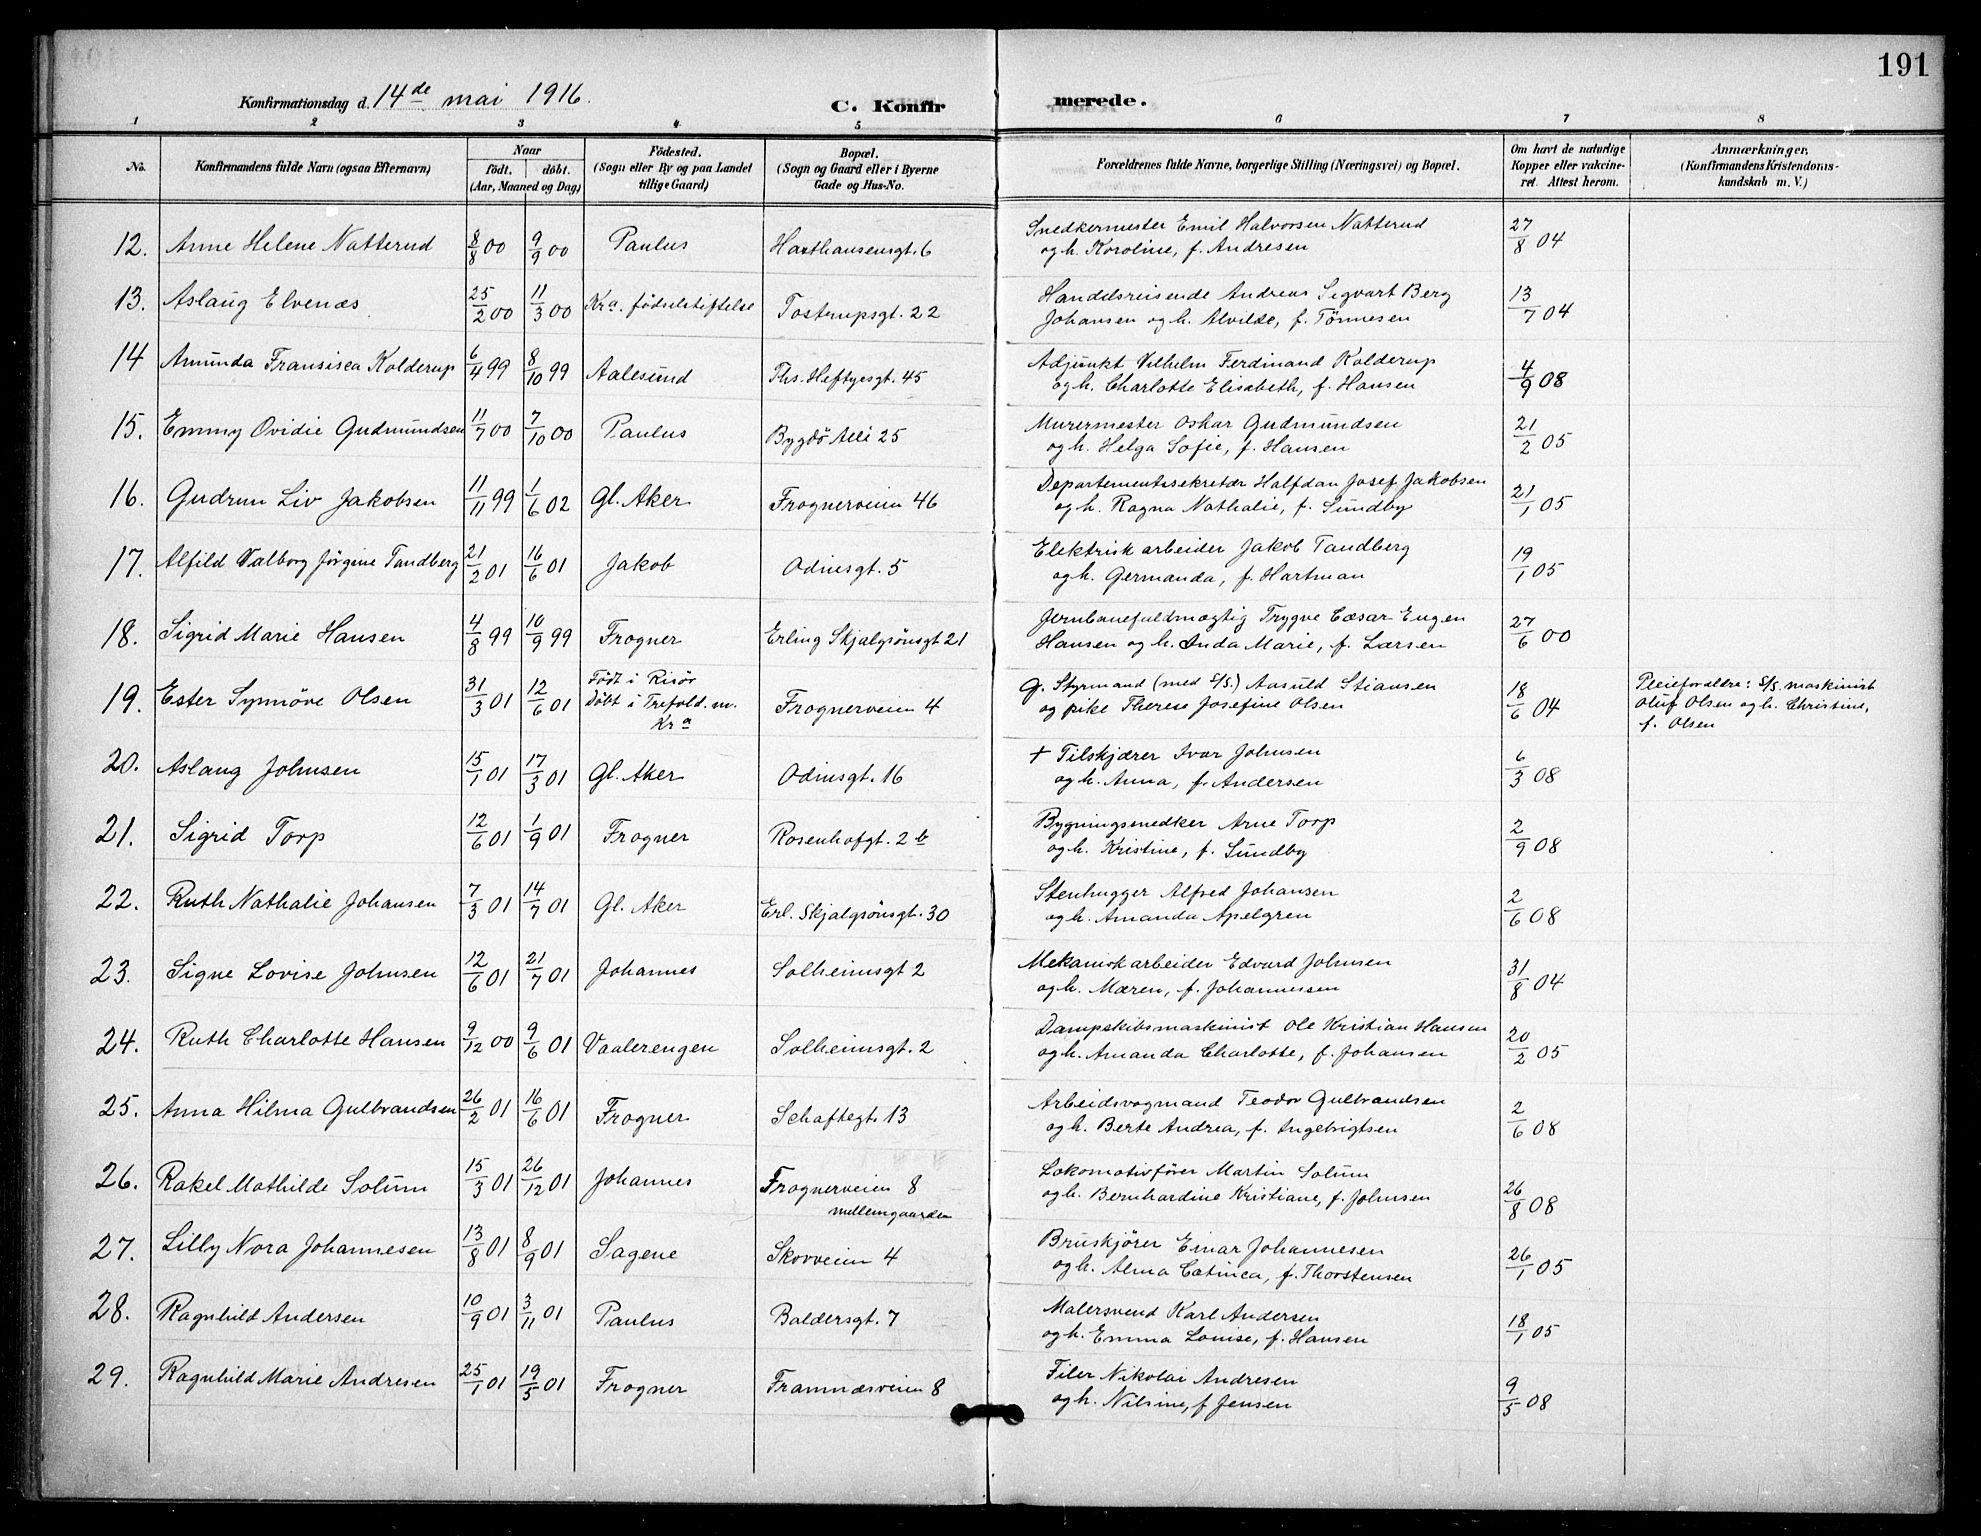 191
Konfirmationsdag d. 14de mai 1916.
C. Konfir
merede.
1 2 3 4 5 6 7 8
No.
Konfirmandens fulde Navn (ogsaa Efternavn)
Naar
født. døbt.
(Aar, Maaned og Dag)
Fødested.
(Sogn eller By og paa Landet
tillige Gaard)
Bopæl.
(Sogn og Gaard eller i Byerne
Gade og Hus-No.
Forældrenes fulde Navne, borgerlige Stilling (Næringsvei) og Bopæl.
Om havt de naturlige
Kopper eller vakcine-
ret. Attest herom.
Anmærkninger.
(Konfirmandens Kristendoms-
kundskab m. V.)
12. Anne Helene Natterud 8/8 00 9/9 00 Paulus Haxthausensgt. 6
Snedkermester Emil Halvorsen Natterud
og h. Karoline, f. Andresen 27/8 04
13. Aslaug Elvenæs 25/2 00 11/3 00 Kra. fødselstiftelse Tostrupsgt. 22
Handelsreisende Andreas Sigvart Berg
Johansen og h. Alvilde, f. Tönnesen 13/7 04
14 Amunda Fransisca Kolderup 6/4 99 8/10 99 Aalesund Ths. Heftyesgt. 45
Adjunkt Vilhelm Ferdinand Kolderup
og h. Charlotte Elisabeth, f. Hansen 4/9 08
15. Emmy Ovidie Gudmundsen 11/7 00 7/10 00 Paulus Bygdö Alli 25
Murermester Oskar Gudmundsen
og h. Helga Sofie, f. Hansen 21/2 05
16. Gudrun Liv Jakobsen 11/11 99 1/6 02 Gl. Aker Frognerveien 46
Departementssekretær Halfdan Josef Jakobsen
og h. Ragna Nathalie, f. Sundby 21/1 05
17. Alfild Valborg Jørgine Tandberg 21/2 01 16/6 01 Jakob Odinsgt. 5
Elektrisk arbeider Jakob Tandberg
og h. Germanda, f. Hartman 19/1 05
18. Sigrid Marie Hansen 4/8 99 10/9 99 Frogner Erling Skjalgsönsgt 21
Jernbanefuldmægtig Trygve Cæsar Eugen
Hansen og h. Inda Marie, f. Larsen 27/6 00
19. Ester Synnöve Olsen 31/3 01 12/6 01 Födt i Risör
Döbt i Trefold. m.
Kra Frognerveien 4
g. Styrmand (med S/S.) Aasuld Stiansen
og pike Therese Josefine Olsen 18/6 04
Pleieforældre: S/S. maskinist
Oluf Olsen og h. Christine,
f. Olsen
20. Aslaug Johnsen 15/1 01 17/3 01 Gl. Aker Odinsgt. 16
+ Tilskjærer Ivar Johnsen
og h. Anna, f. Andersen 6/3 08
21. Sigrid Torp 12/6 01 1/9 01 Frogner Rosenhofgt. 2 b
Bygningssnedker Arne Torp
og h. Kristine, f. Sundby 2/9 08
22. Ruth Nathalie Johansen 7/3 01 14/7 01 Gl. Aker Erl. Skjalgsönsgt. 30
Stenhugger Alfred Johansen
og h. Amanda Apelgren 2/6 08
23. Signe Lovise Johnsen 12/6 01 21/7 01 Johannes Solheimsgt 2
Mekanisk arbeider Edvard Johnsen
og h. Maren, f. Johannessen 31/8 04
24. Ruth Charlotte Hansen 9/12 00 9/6 01 Vaalerengen Solheimsgt. 2
Dampskibsmaskinist Ole Kristian Hansen
og h. Amanda Charlotte, f. Johansen 20/2 05
25. Anna Hilma Gulbrandsen 26/2 01 16/6 01 Frogner Schaftegt. 13
Arbeidsvogmand Teodor Gulbrandsen
og h. Berte Andrea, f. Ingebrigtsen 2/6 08
26. Rakel Mathilde Solum 15/3 01 26/12 01 Johannes Frognerveien 8
mellemgaarden
Lokomotivfører Martin Solum
og h. Bernhardine Kristiane, f. Johnsen 26/8 08
27. Lilly Nora Johannesen 13/8 01 8/9 01 Sagene Skovveien 4
Bruskjörer Einar Johannesen
og h. Alma Catinca, f. Thorstensen 26/1 05
28. Ragnhild Andersen 10/9 01 3/11 01 Paulus Baldersgt. 7
Malersvend Karl Andersen
og h. Emma Louise, f. Hansen 18/1 05
29. Ragnhild Marie Andresen 25/1 01 19/5 01 Frogner Framnæsveien 8
Filer Nikolai Andresen
og h. Nilsine, f Jensen 9/5 08